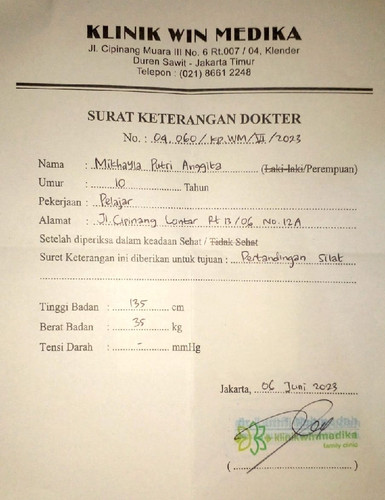 KLINIK WIN MEDIKA
Jl. Cipinang Muara III No. 6 Rt.007 / 04, Klender
Duren Sawit - Jakarta Timur
Telepon : (021) 8661 2248
SURAT KETERANGAN DOKTER
No. : 04.060/KP.WM/VI/2023
Nama : Mikhayla Putri Anggita (Laki-laki/Perempuan)
Umur : 10 Tahun
Pekerjaan : Pelajar
Alamat : Jl. Cipinang Lontar Rt 13/06 No. 12A
Setelah diperiksa dalam keadaan Sehat / Tidak Sehat
Surat Keterangan ini diberikan untuk tujuan : Pertandingan Silat
Tinggi Badan : 135 cm
Berat Badan : 35 kg
Tensi Darah : - mmHg
Jakarta, 06 Juni 2023
klinikwinmedika
family clinic